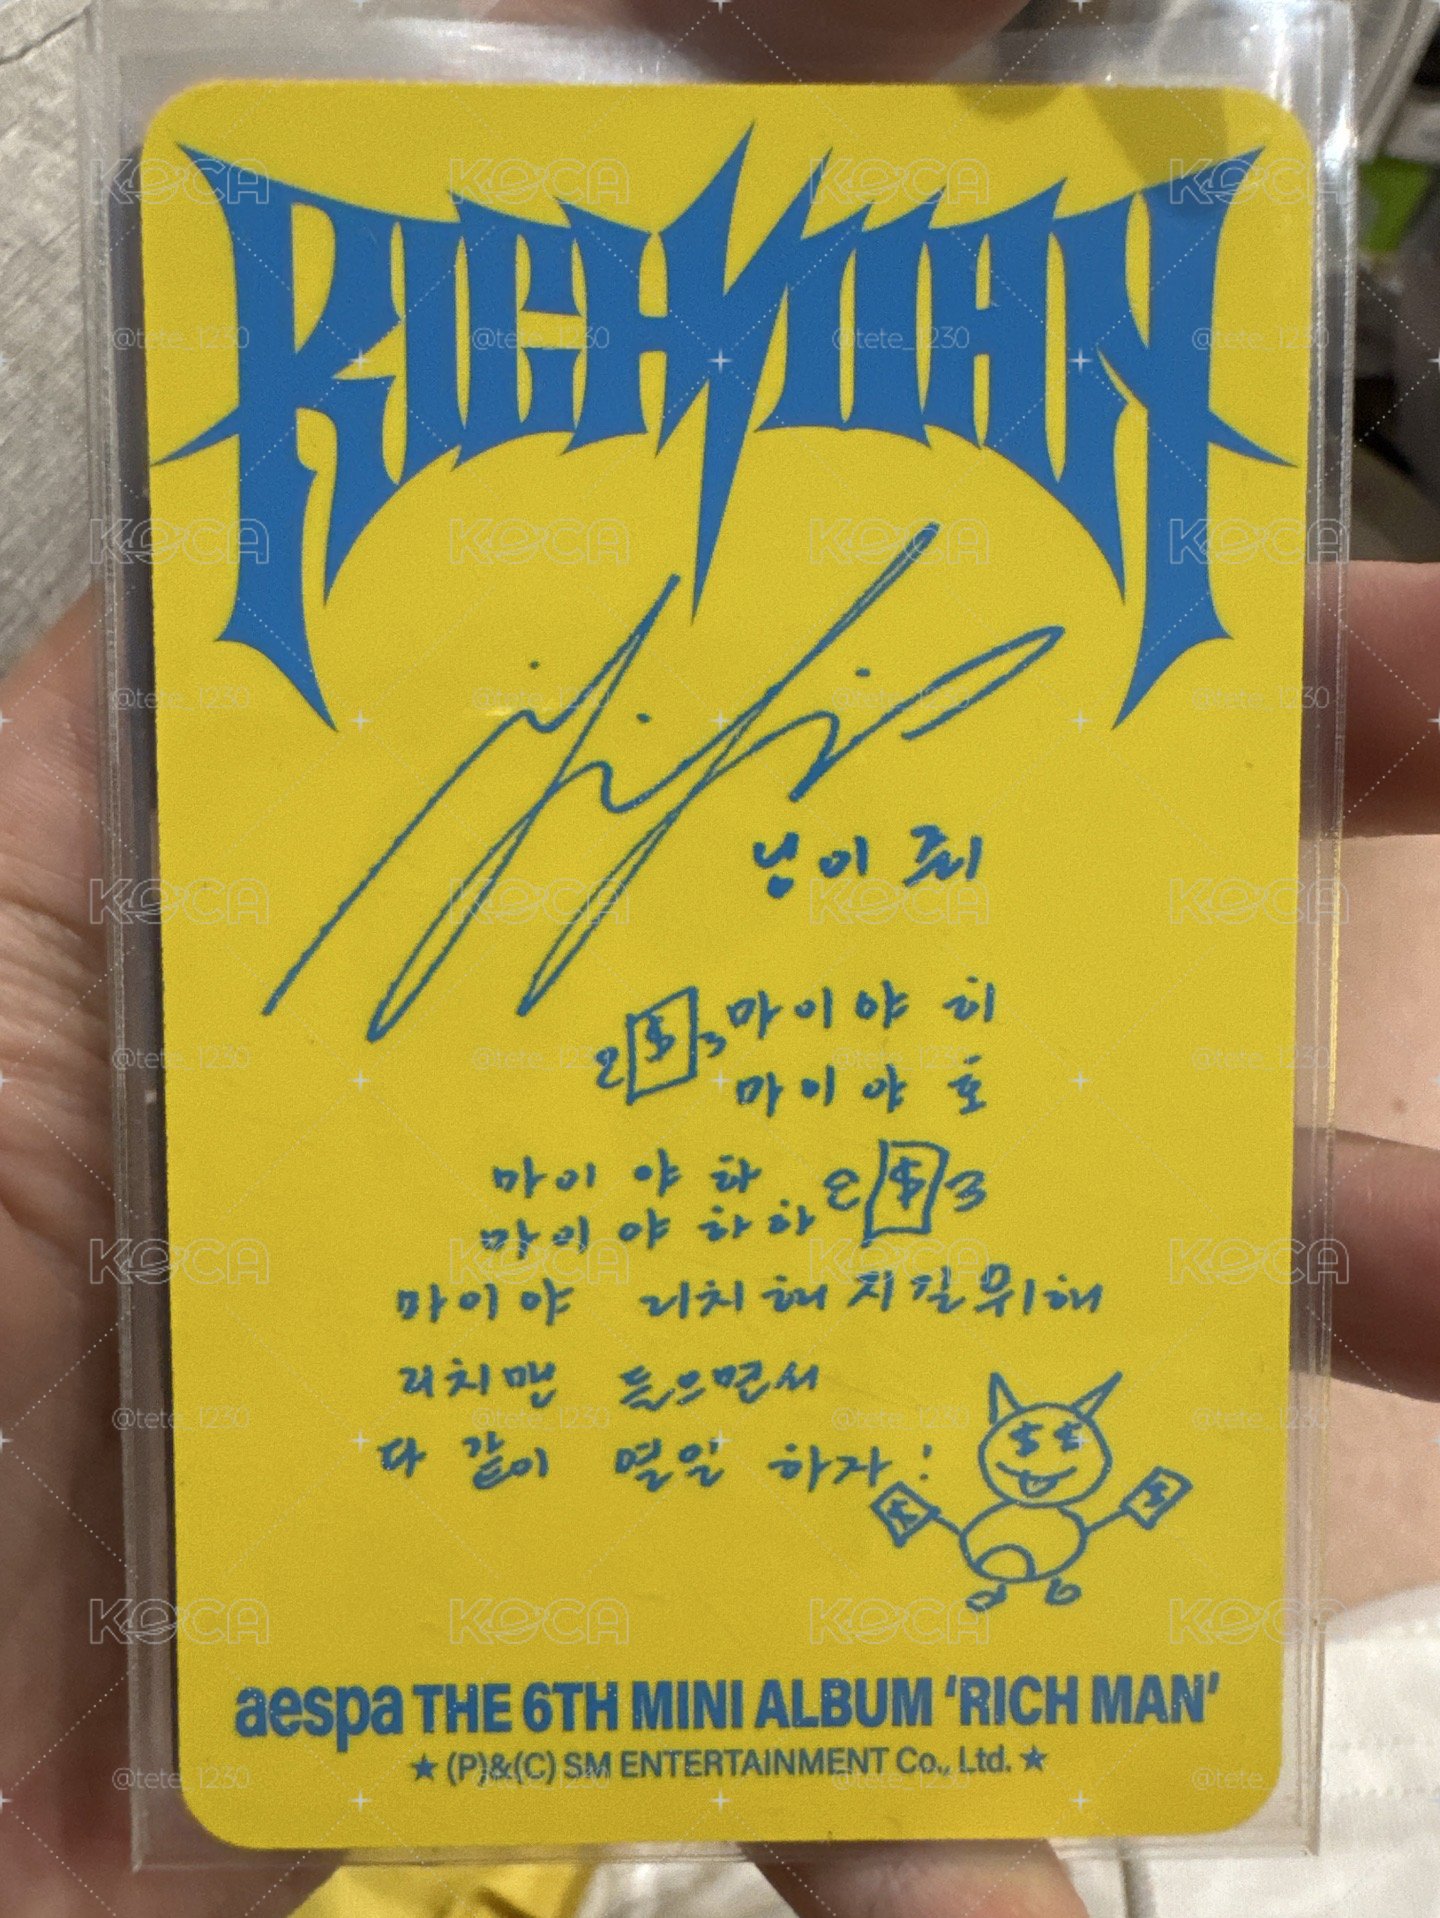 RICH MAN
닝이 줘
$ 마이야 히
마이야 호
마이야 하
마이야 하하 $
마이야 리치해지길 위해
리치맨 들으면서
다 같이 열일 하자!
$ $
$ $
aespa THE 6TH MINI ALBUM ‘RICH MAN’
★ (P)&(C) SM ENTERTAINMENT Co., Ltd. ★
KOCA
@tete_1230